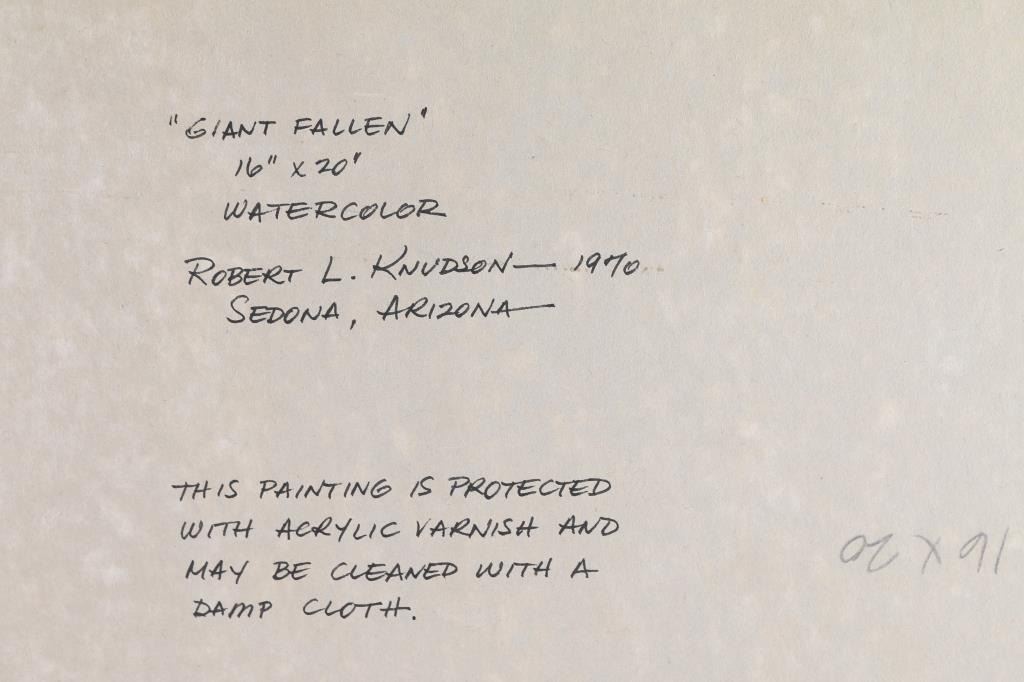 "GIANT FALLEN"
16" X 20"
WATERCOLOR
ROBERT L. KNUDSON— 1970
SEDONA, ARIZONA—
THIS PAINTING IS PROTECTED
WITH ACRYLIC VARNISH AND
MAY BE CLEANED WITH A
DAMP CLOTH.
16 X 20